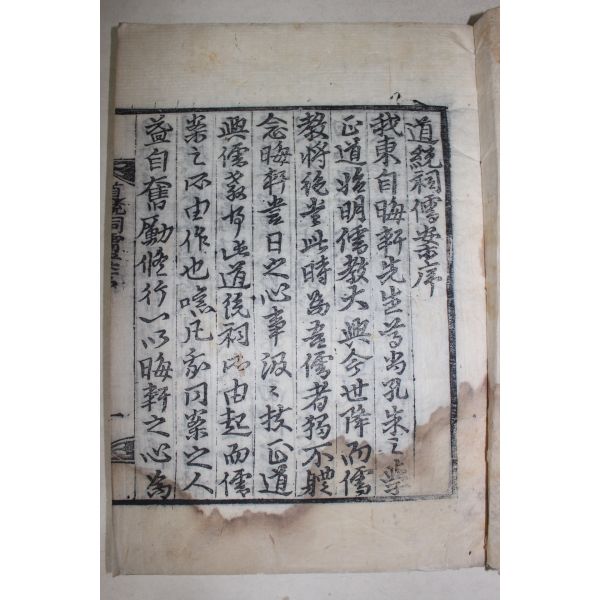 道統祠儒案序
我東自晦軒先生尊尚孔朱之學
正道始明儒教大興今世降而儒
教將絶當此時為吾儒者獨不體
念晦軒當日之心事汲汲扶正道
興儒教乎此道統祠所由起而儒
案之所由作也噫凡我同案之人
益自奮勵修行一以晦軒之心為
道統祠儒案序
一